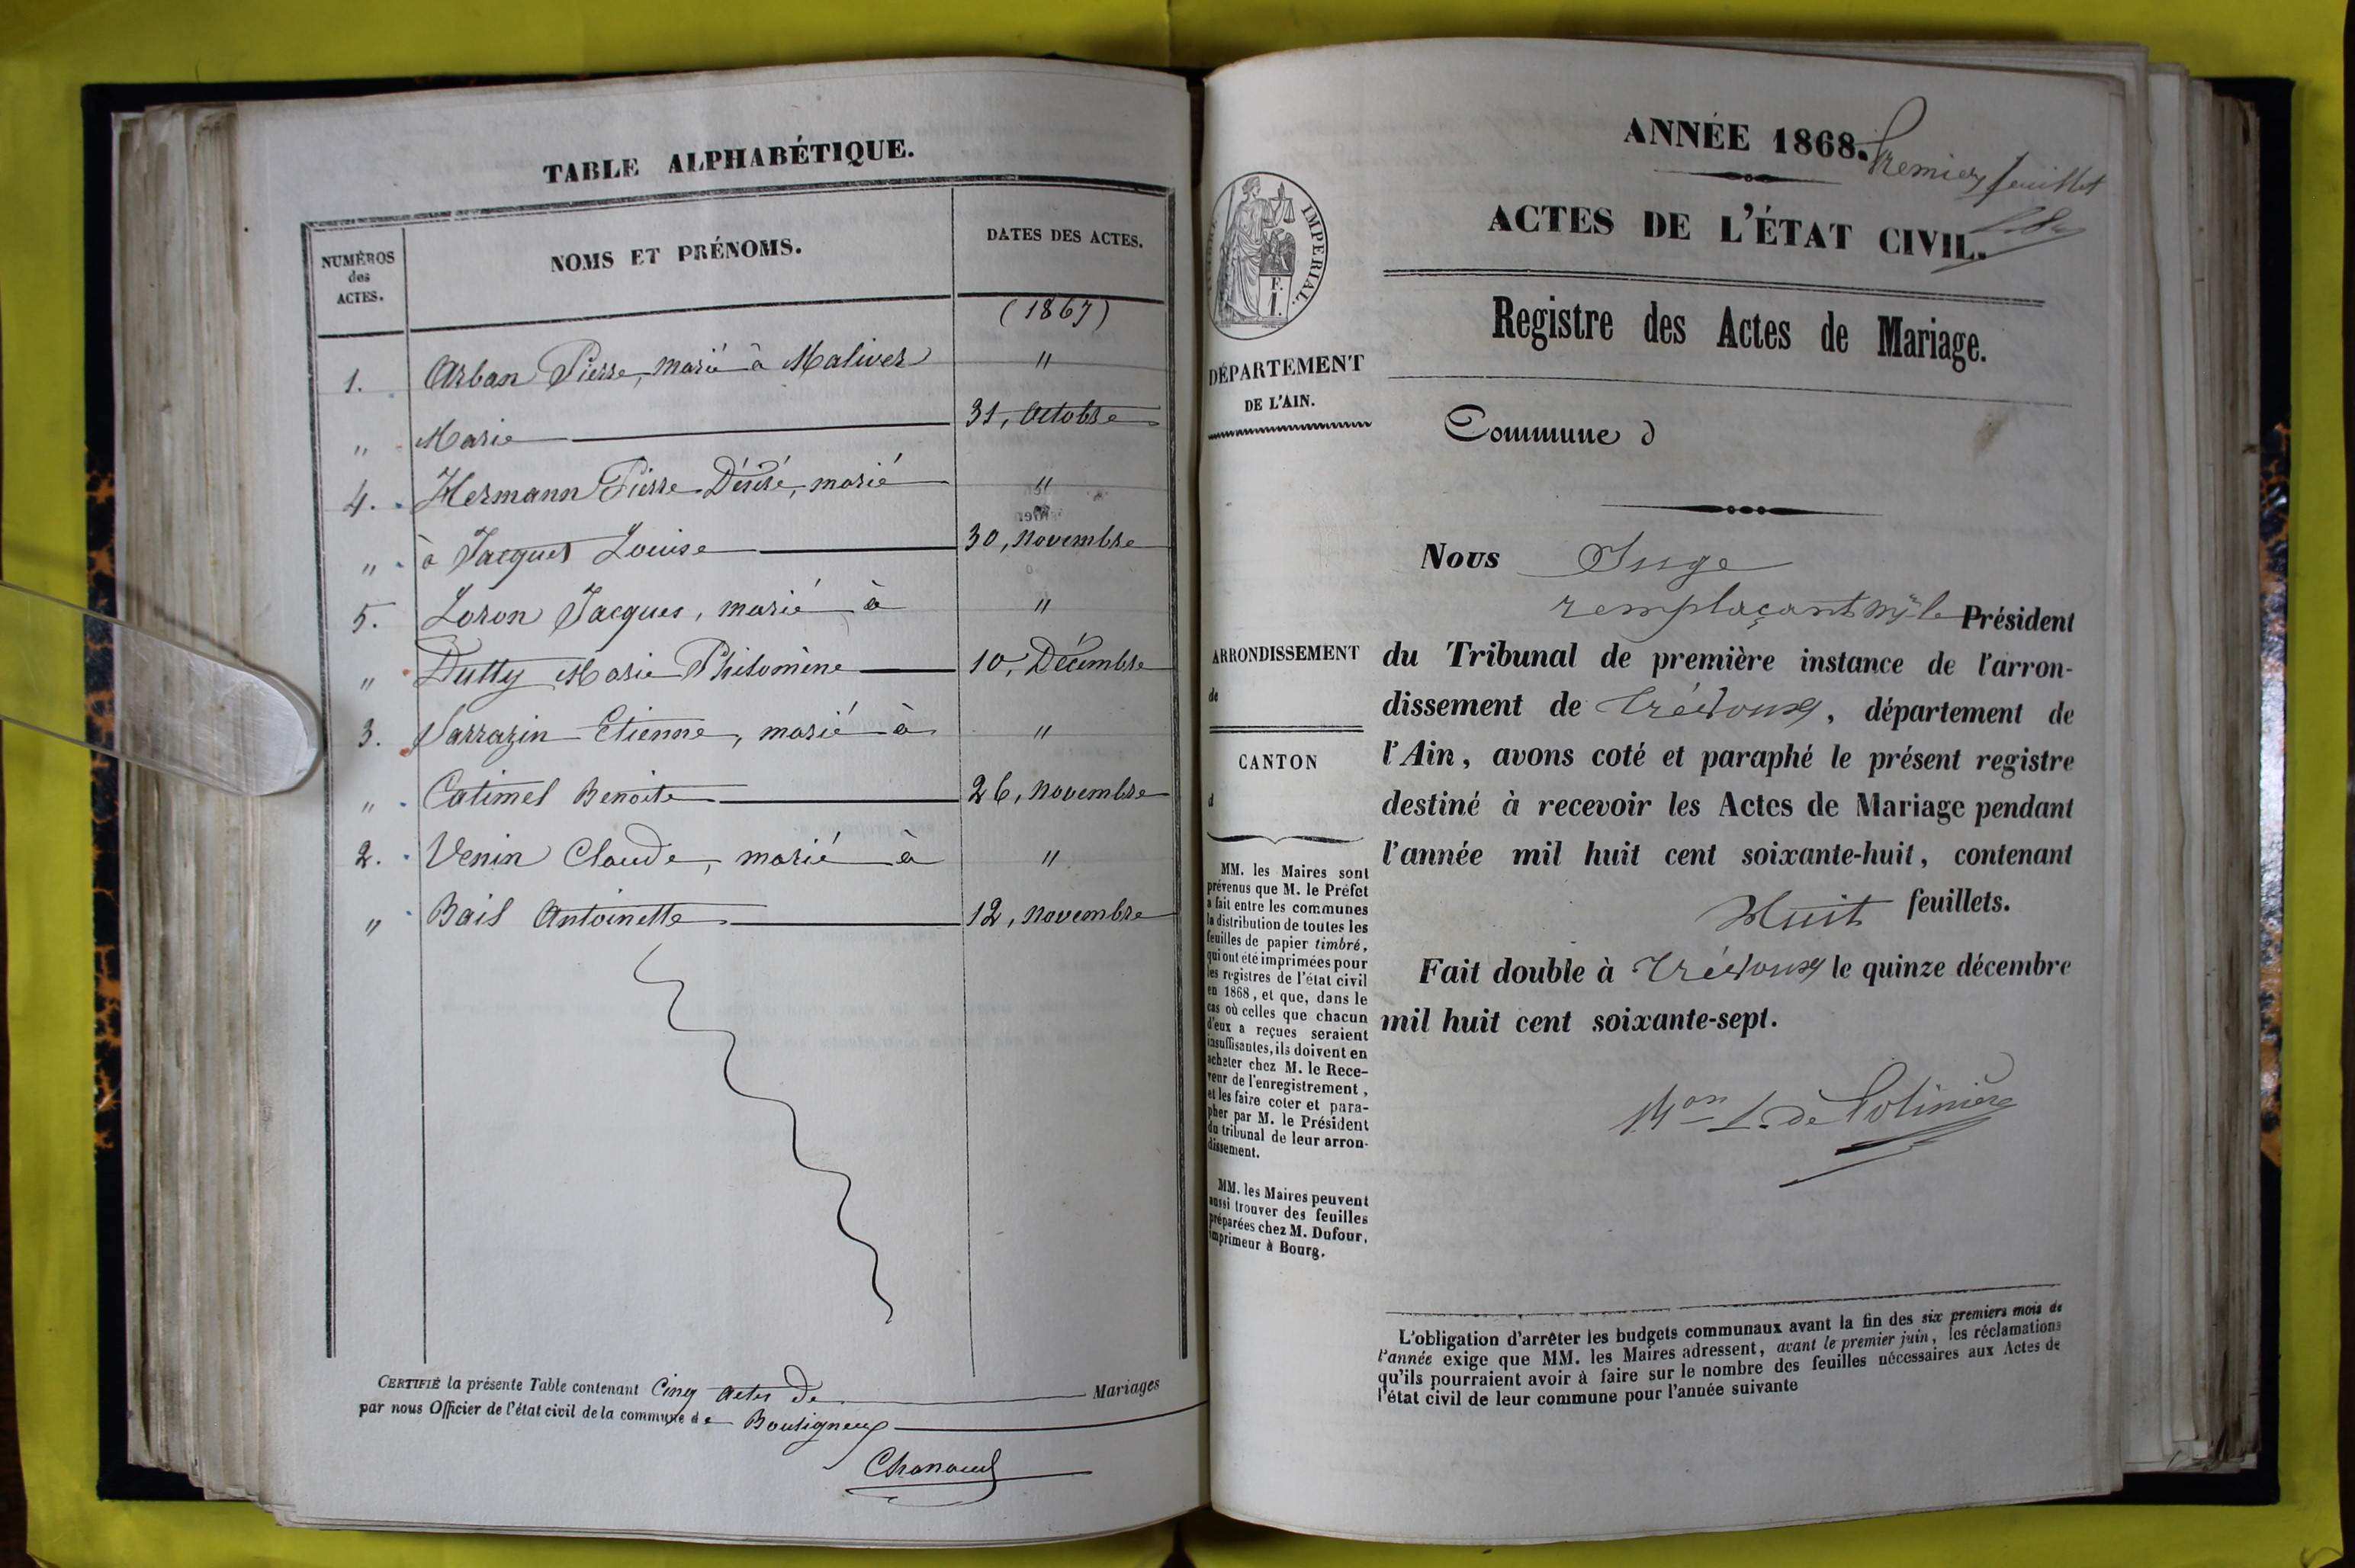 TABLE ALPHABÉTIQUE.
NUMÉROS
des
ACTES.
NOMS ET PRÉNOMS.
DATES DES ACTES.
(1867)
1. Arban Pierre, marié à Maliver "
" Marie 31, Octobre
4. Hermann Pierre Désiré, marié "
" à Jacques Louise 30, novembre
5. Loron Jacques, marié à "
" Dutty Marie Philomène 10, Décembre
3. Sarrazin Etienne, marié à "
" Catimel Benoite 26, novembre
2. Venin Claude, marié à "
" Bail Antoinette 12, novembre
CERTIFIÉ la présente Table contenant Cinq actes de Mariages
par nous Officier de l'état civil de la commune de Bouligneux
Chanaud
ANNÉE 1868.
Premier feuillet
ACTES DE L'ÉTAT CIVIL.
Registre des Actes de Mariage.
TIMBRE IMPERIAL.
F.
1.
DÉPARTEMENT
DE L'AIN.
ARRONDISSEMENT
de
CANTON
d
MM. les Maires sont
prévenus que M. le Préfet
a fait entre les communes
la distribution de toutes les
feuilles de papier timbré,
qui ont été imprimées pour
les registres de l'état civil
en 1868, et que, dans le
cas où celles que chacun
d'eux a reçues seraient
insuffisantes, ils doivent en
acheter chez M. le Rece-
veur de l'enregistrement,
et les faire coter et para-
pher par M. le Président
du tribunal de leur arron-
dissement.
MM. les Maires peuvent
aussi trouver des feuilles
préparées chez M. Dufour,
imprimeur à Bourg.
Commune d
Nous Juge
remplaçant Mr le Président
du Tribunal de première instance de l'arron-
dissement de Trévoux, département de
l'Ain, avons coté et paraphé le présent registre
destiné à recevoir les Actes de Mariage pendant
l'année mil huit cent soixante-huit, contenant
Huit feuillets.
Fait double à Trévoux le quinze décembre
mil huit cent soixante-sept.
L. de Polinière
L'obligation d'arrêter les budgets communaux avant la fin des six premiers mois de
l'année exige que MM. les Maires adressent, avant le premier juin, les réclamations
qu'ils pourraient avoir à faire sur le nombre des feuilles nécessaires aux Actes de
l'état civil de leur commune pour l'année suivante